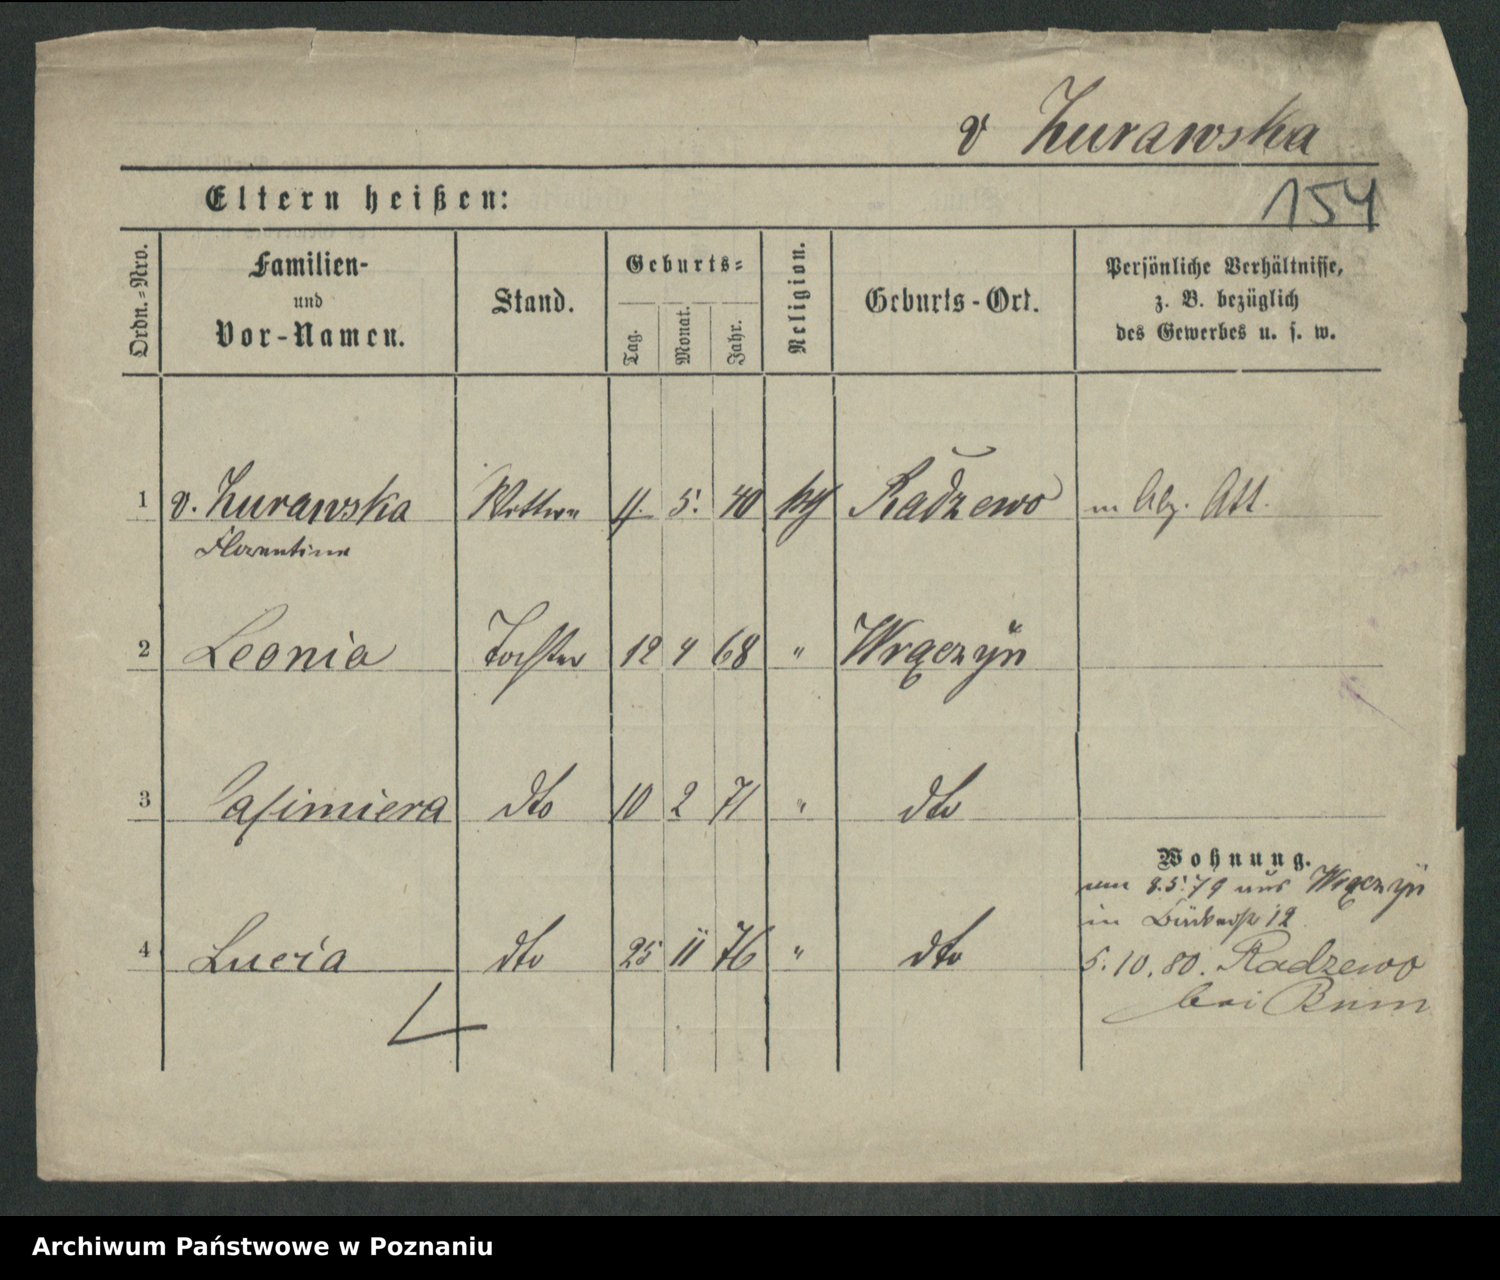 v Zurawska
154
Eltern heißen:
Ordn.=Nro.
Familien-
und
Vor-Namen.
Stand.
Geburts=
Tag.
Monat.
Jahr.
Religion.
Geburts-Ort.
Persönliche Verhältnisse,
z. B. bezüglich
des Gewerbes u. s. w.
1 v. Zurawska Wittwe 11. 5. 40 Radzewo m Abz. Att.
Florentine
2 Leonia Tochter 12 4 68 " Wrączyn
3 Casimiera dto 10 2 71 " dto
Wohnung.
am 8.5.79 aus Wrączyn
in 12
4 Lucia dto 25 11 76 " dto
5.10.80. Radzewo
bei Bnin
Archiwum Państwowe w Poznaniu